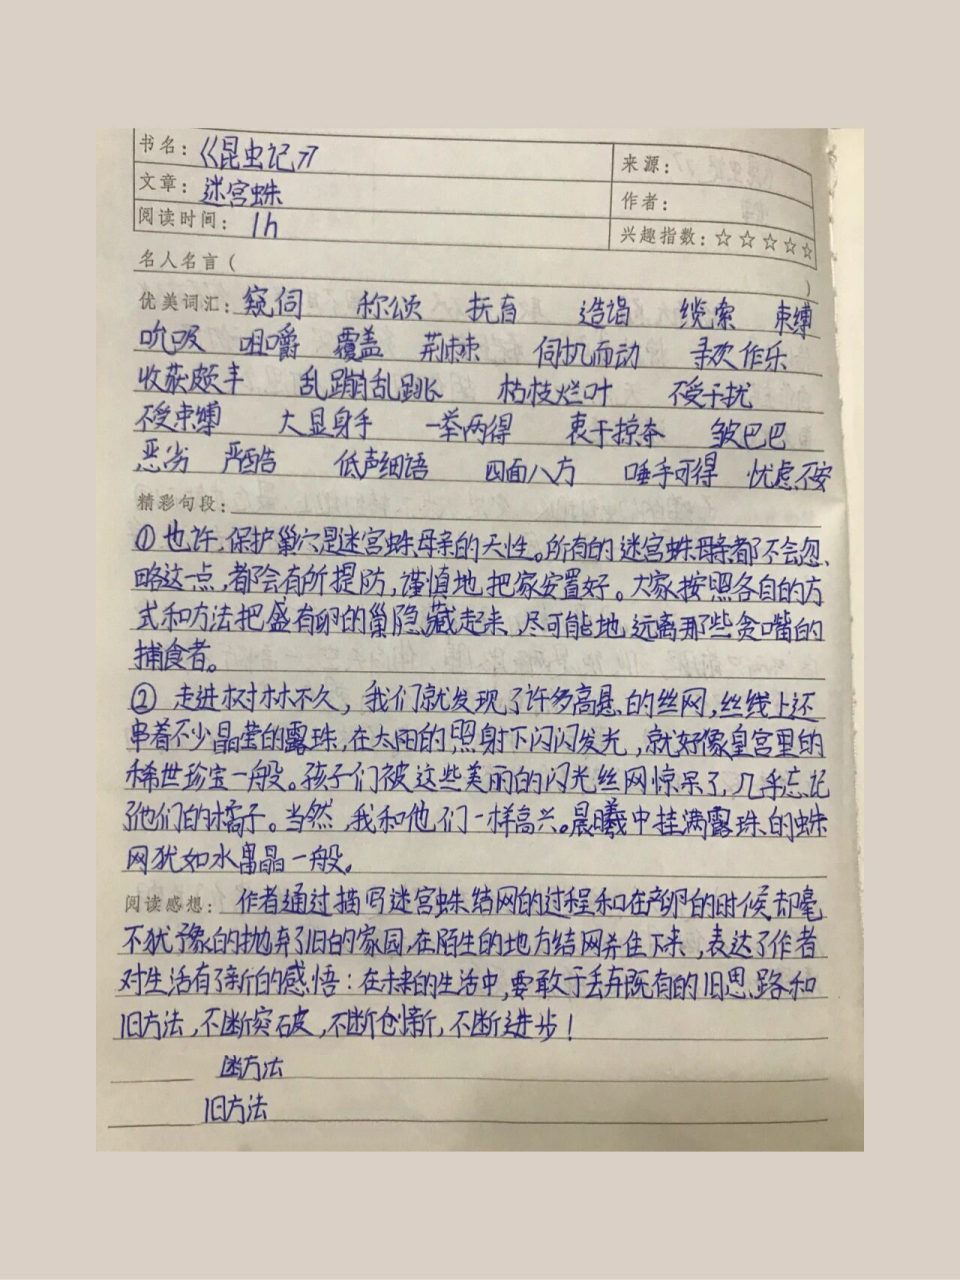 书名：《昆虫记》 来源：
文章：迷宫蛛 作者：
阅读时间：1h 兴趣指数：☆☆☆☆☆
名人名言（ ）
优美词汇：窥伺 称颂 抚育 造谒 缆索 束缚
吮吸 咀嚼 覆盖 荆棘 伺机而动 寻欢作乐
收获颇丰 乱蹦乱跳 枯枝烂叶 不受干扰
不受束缚 大显身手 一举两得 衷于掠夺 皱巴巴
恶劣 严酷 低声细语 四面八方 唾手可得 忧虑不安
精彩句段：
①也许，保护巢穴是迷宫蛛母亲的天性。所有的迷宫蛛母亲都不会忽
略这一点，都会有所提防，谨慎地把家安置好。大家按照各自的方
式和方法把盛有卵的巢隐藏起来，尽可能地远离那些贪嘴的
捕食者。
②走进树林不久，我们就发现了许多高悬的丝网，丝线上还
串着不少晶莹的露珠，在太阳的照射下闪闪发光，就好像皇宫里的
稀世珍宝一般。孩子们被这些美丽的闪光丝网惊呆了，几乎忘记
了他们的橘子。当然，我和他们一样高兴。晨曦中挂满露珠的蛛
网犹如水晶一般。
阅读感想：作者通过描写迷宫蛛结网的过程和在产卵的时候却毫
不犹豫的抛弃了旧的家园，在陌生的地方结网并住下来，表达了作者
对生活有了新的感悟：在未来的生活中，要敢于丢弃既有的旧思路和
旧方法，不断突破，不断创新，不断进步！
方法
旧方法